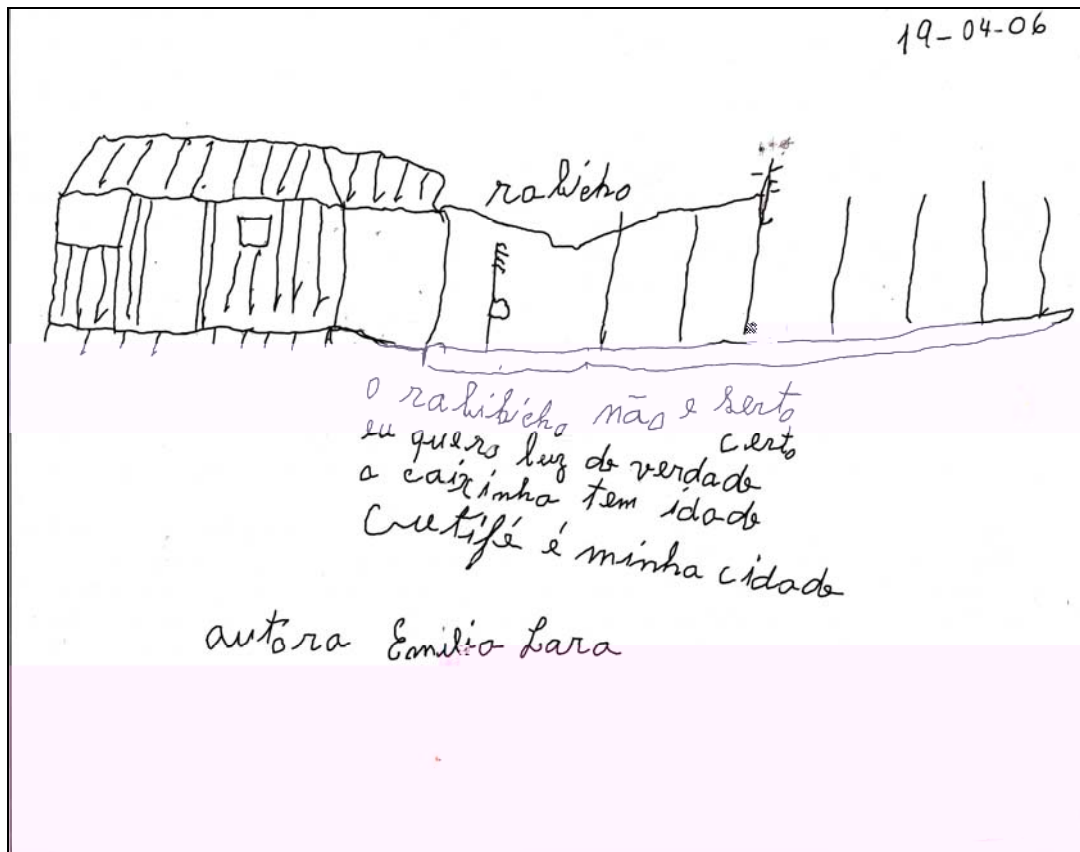 19-04-06
rabicho
o rabibicho não e serto
certo
eu quero luz de verdade
a caixinha tem idade
Cutifé é minha cidade
autora Emilia Lara